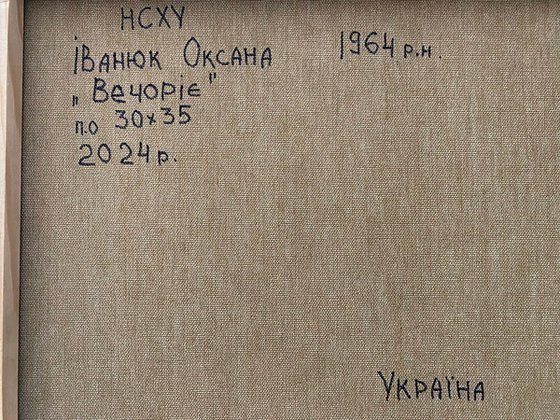 НСХУ
Іванюк Оксана 1964 р.н.
„Вечоріє"
п.о 30×35
2024р.
Україна